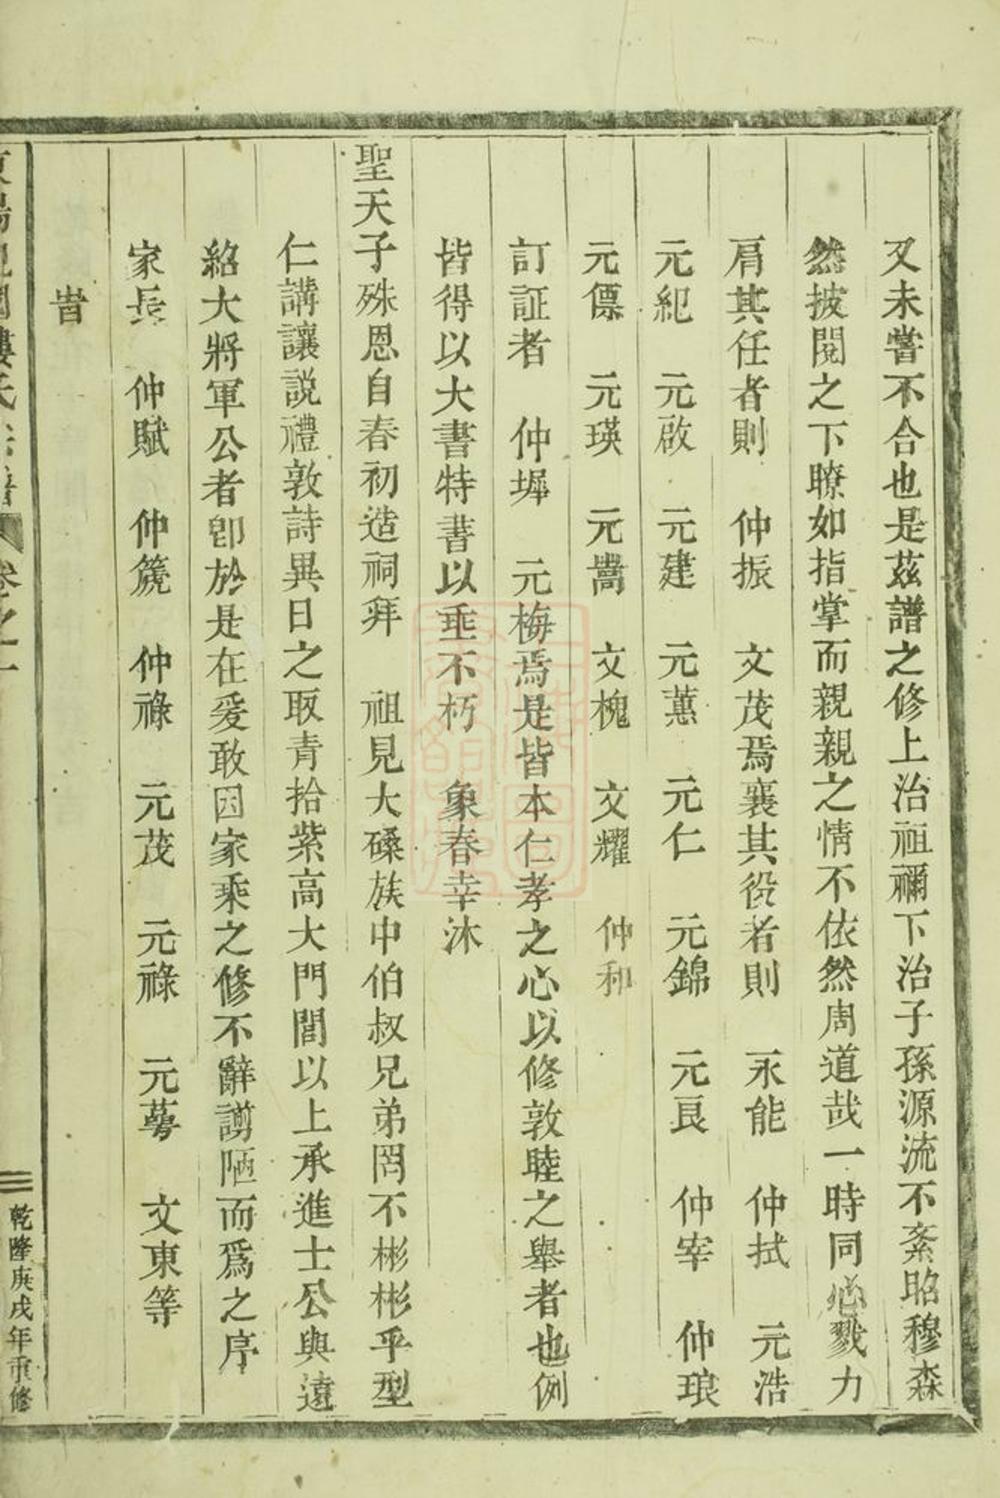 又未嘗不合也是茲譜之修上治祖禰下治子孫源流不紊昭穆森
然披閱之下瞭如指掌而親親之情不依然周道哉一時同心戮力
肩其任者則 仲振 文茂焉襄其役者則 永能 仲拭 元浩
元紀 元啟 元建 元蕙 元仁 元錦 元良 仲宰 仲琅
元僄 元瑛 元嵩 文槐 文耀 仲和
訂証者 仲墀 元梅焉是皆本仁孝之心以修敦睦之舉者也例
皆得以大書特書以垂不朽 象春幸沐
聖天子殊恩自春初造祠拜 祖見大磉族中伯叔兄弟罔不彬彬乎型
仁講讓説禮敦詩異日之取青拾紫高大門閭以上承進士公與遠
紹大將軍公者卽於是在爰敢因家乘之修不辭譾陋而爲之序
家長 仲賦 仲篪 仲祿 元茂 元祿 元 文東等
旹
卷之一
乾隆庚戌年重修